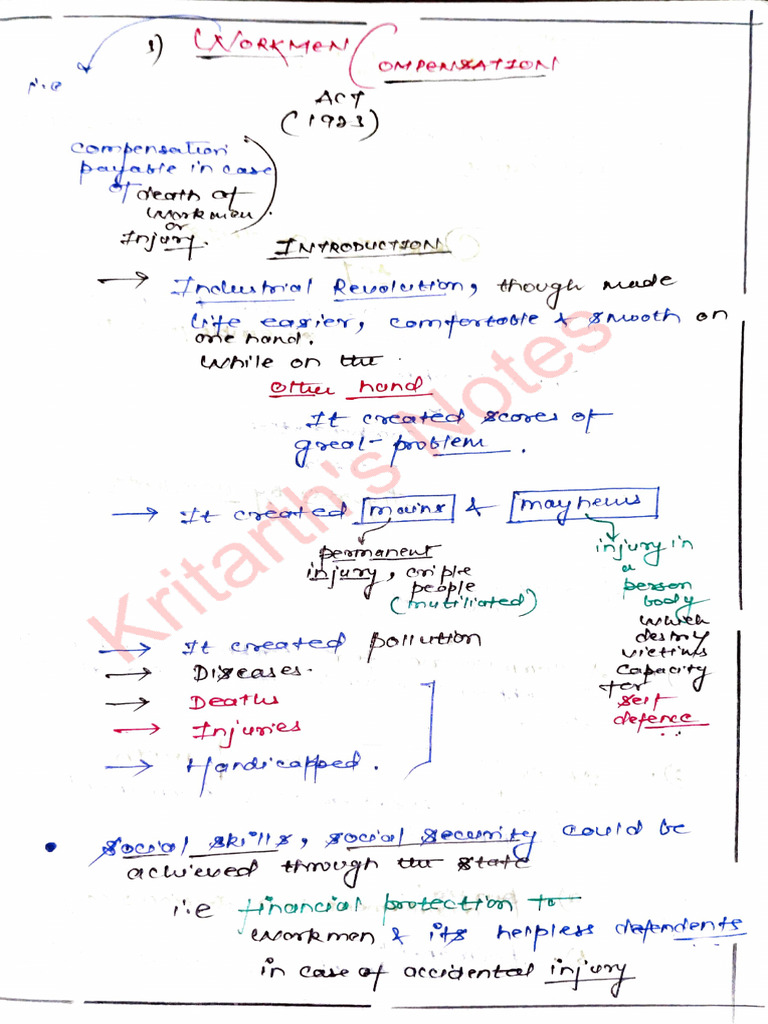 1) WORKMEN COMPENSATION
ACT
(1923)
i.e
compensation
payable in case
of death of
workmen.
or
Injury.
INTRODUCTION
→ Industrial Revolution, though made
life easier, comfortable & smooth on
one hand.
While on the
Other hand
It created scores of
great problem.
→ It created mains & mayhems
permanent
injury, criple
people
(mutiliated)
injury in
a
person
body
which
destroy
victims
capacity
for
self
defence
→ It created pollution
→ Diseases.
→ Deaths
→ Injuries
→ Handicapped.
• Social skills, social security could be
achieved through the state
i.e financial protection to
workmen & its helpless dependents
in case of accidental injury
Kritarth's Notes